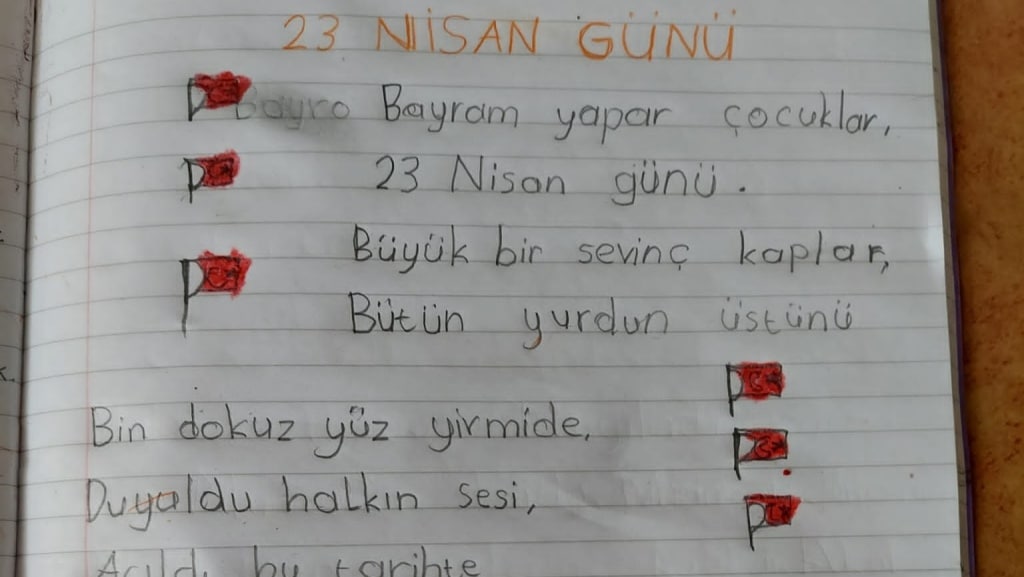 23 NİSAN GÜNÜ
Bayro Bayram yapar çocuklar,
23 Nisan günü.
Büyük bir sevinç kaplar,
Bütün yurdun üstünü
Bin dokuz yüz yirmide,
Duyaldu halkın sesi,
Açıldı bu tarihte